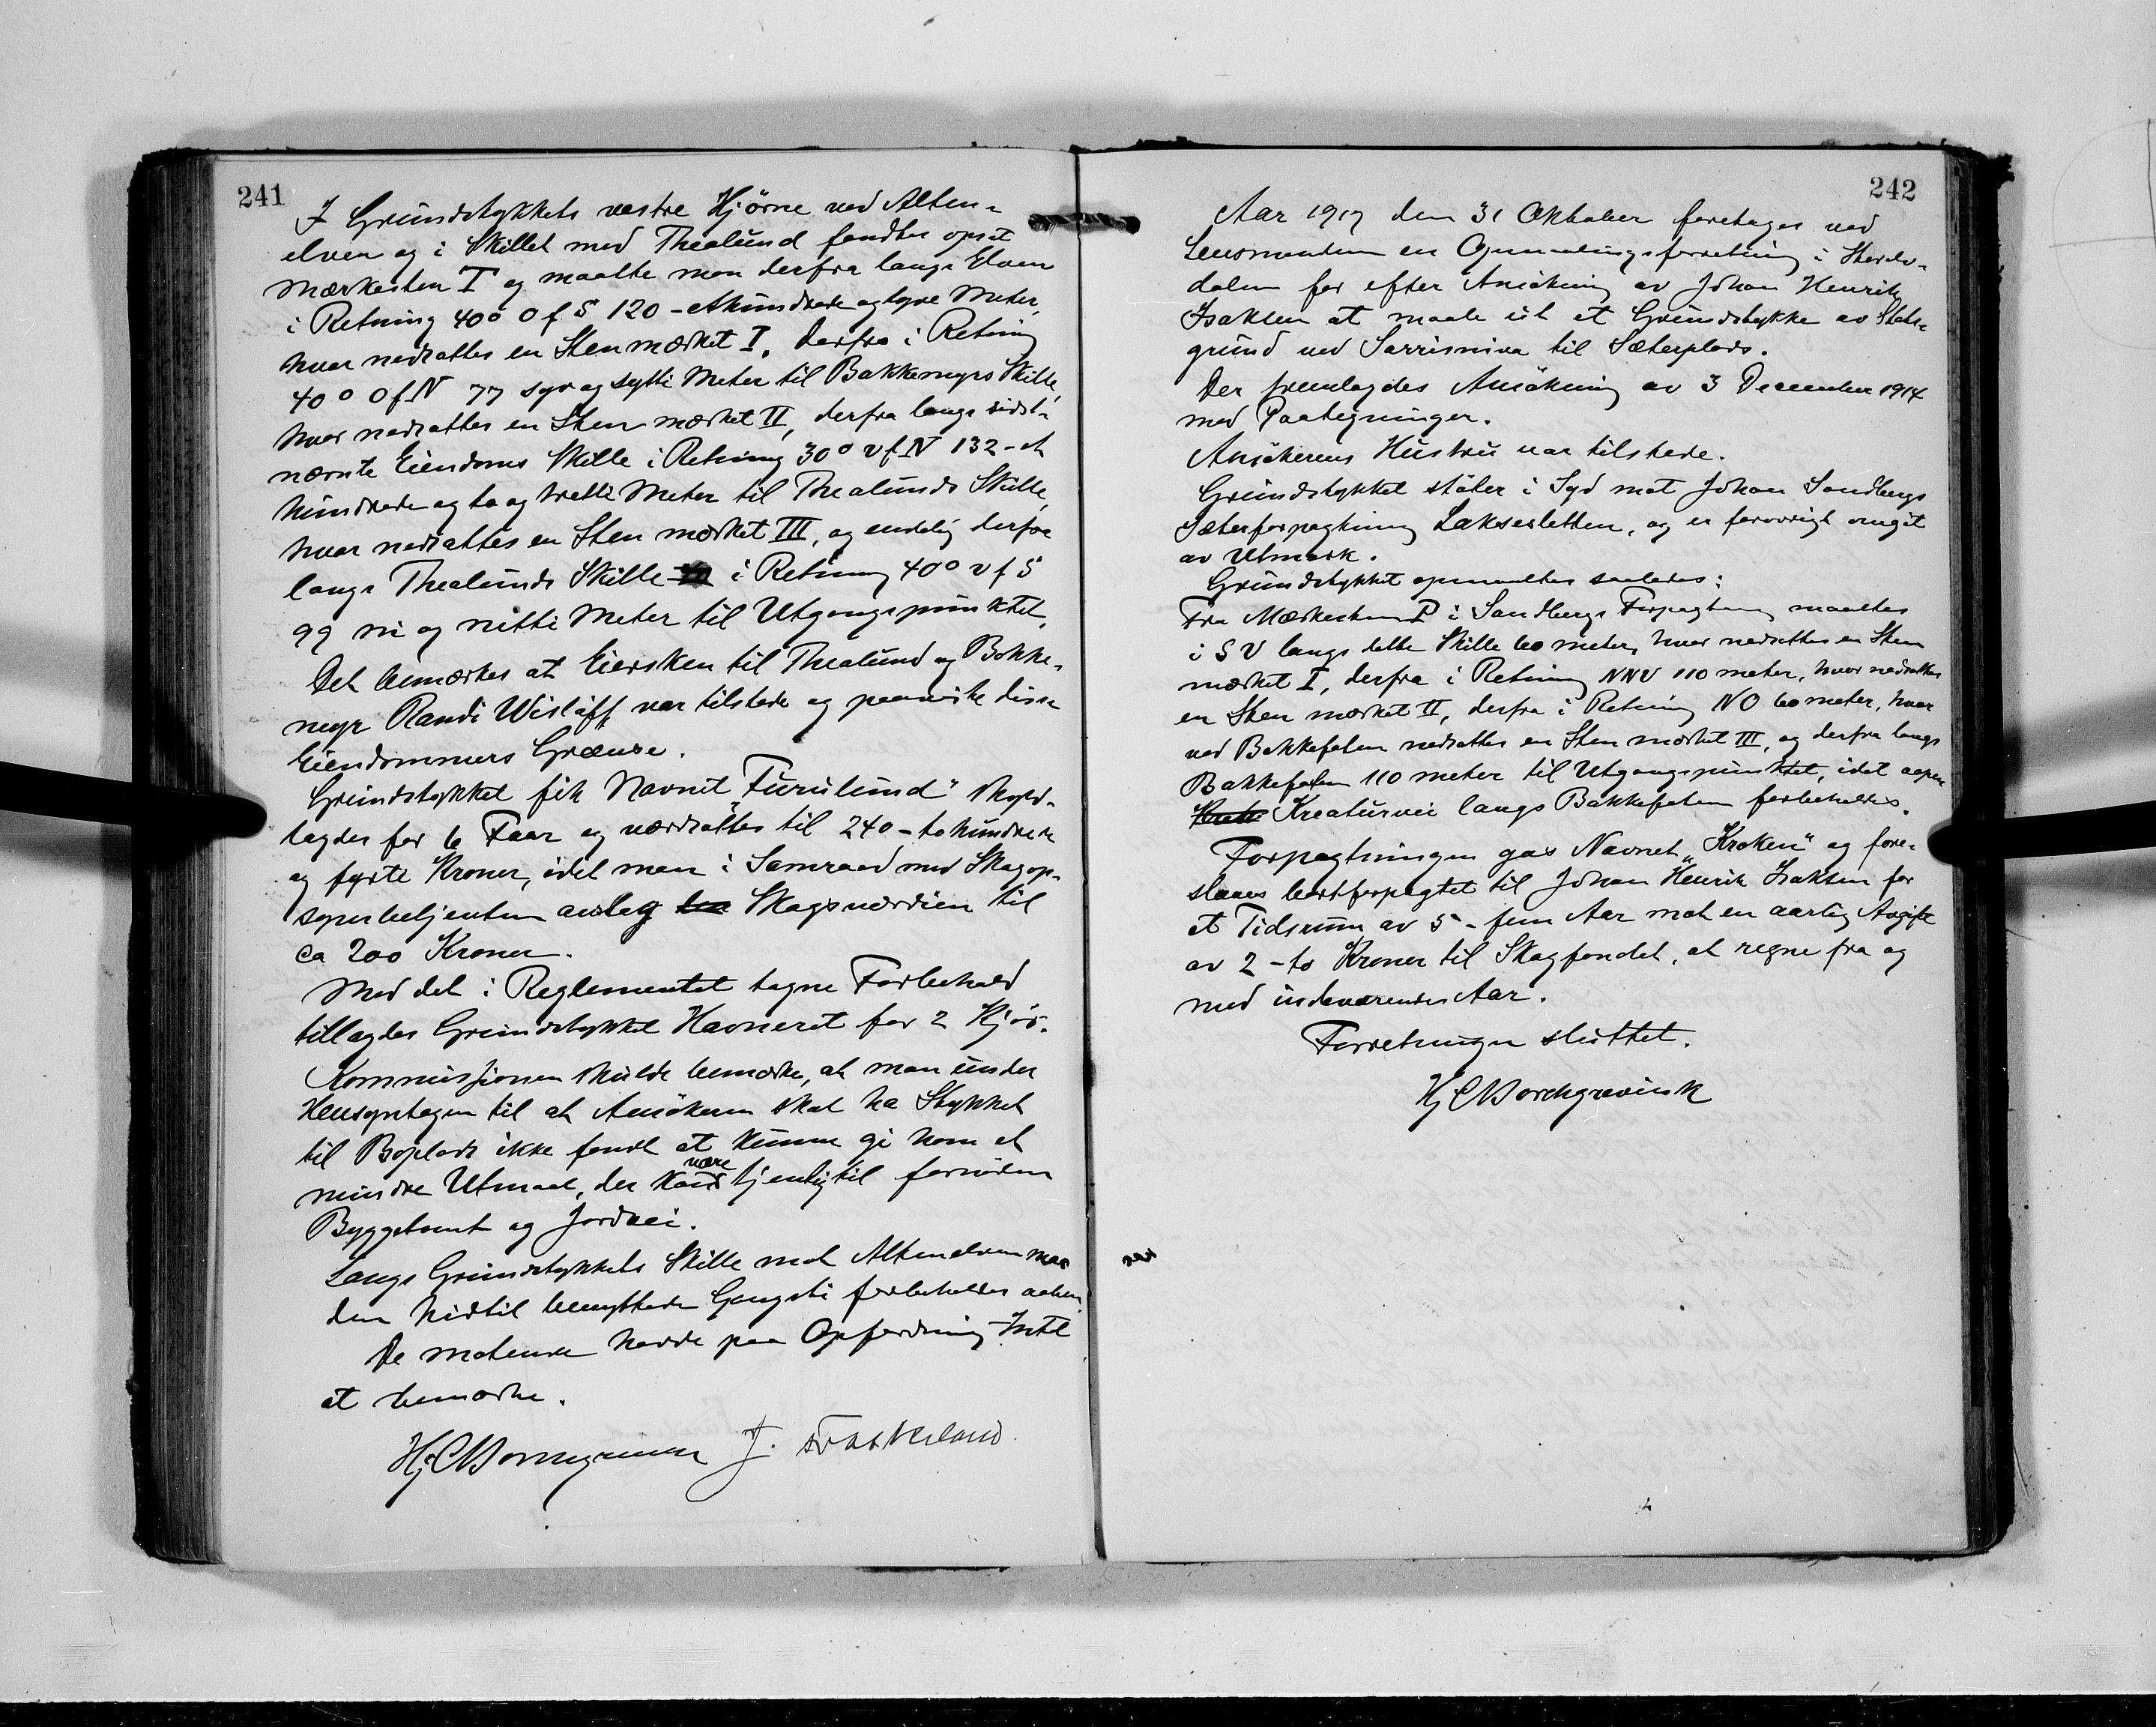 241
I Grundstykkets vestre Hjörne ved Alten-
elven og i Skillet med Thealund fandtes opsat
Mærkesten I og maalte man derfra langs Elven
i Retning 40° O f S 120 - ethundrede og tyve Meter,
hvor nedsattes en Sten mærket I, derfra i Retning
40° O f N 77 syv og sytti Meter til Bakkemyrs Skille,
hvor nedsattes en Sten mærket II, derfra langs sidst-
nævnte Eiendoms Skille i Retning 30° V f N 132 - et
hundrede og to og tretti Meter til Thealunds Skille,
hvor nedsattes en Sten mærket III, og endelig derfra
langs Thealunds Skille i Retning 40° V f S
99 ni og nitti Meter til Utgangspunktet.
Det bemærkes at Eiersken til Thealund og Bakke-
myr Randi Wislöff var tilstede og paaviste disse
Eiendommers Grænse.
Grundstykket fik Navnet "Furulund" skyld-
lagdes for 6 Faar og værdsattes til 240 - tohundrede
og fyrti Kroner, idet man i Samraad med Skogop-
synsbetjenten ansley Skogsværdien til
ca 200 Kroner.
Med det i Reglementet tagne Forbehold
tillagdes Grundstykket Havneret for 2 Kjör.
Kommissjonen skulde bemærke, at man under
Hensyntagen til at Ansökeren skal ha Stykket
til Boplads ikke fandt at kunne gi ham et
mindre Utmaal, der kan være tjenlig til fornöden
Byggetomt og Jordvei.
Langs Grundstykkets Skille mot Altenelven maa
den hidtil benyttede Gangsti forbeholdes aaben.
De mötende havde paa Opfordring Intet
at bemærke.
Hj C Borchgrevink J.
242
Aar 1917 den 31 Oktober foretoges ved
Lensmanden en Opmaalingsforretning i Stordv-
dalen for efter Ansökning av Johan Henrik
Isaksen at maale ut et Grundstykke av Stats-
grund ved Sarrisniva til Sæterplads.
Der fremlagdes Ansökning av 3 December 1914
med Paategninger.
Ansökerens Hustru var tilstede.
Grundstykket stöter i Syd mot Johan Sandbergs
Sæterforpagtning Laksesletten, og er forövrigt omgit
av Utmark.
Grundstykket opmaaltes saaledes:
Fra Mærkesten I i Sandbergs Forpagtning maaltes
i S V langs dette Skille 60 meter, hvor nedsattes en Sten
mærket I, derfra i Retning NNV 110 meter, hvor nedsattes
en Sten mærket II, derfra i Retning NO 60 meter, hvor
ved Bakkefoten nedsattes en Sten mærket III, og derfra langs
Bakkefoten 110 meter til Utgangspunktet, idet aapen
Kreaturvei langs Bakkefoten forbeholdes.
Forpagtningen gas Navnet "Kroken" og fore-
slaaes bortforpagtet til Johan Henrik Isaksen for
et Tidsrum av 5 - fem Aar mot en aarlig Avgift
av 2 - to Kroner til Skogfondet, at regne fra og
med indeværende Aar.
Forretningen sluttet.
Hj C Borchgrevink